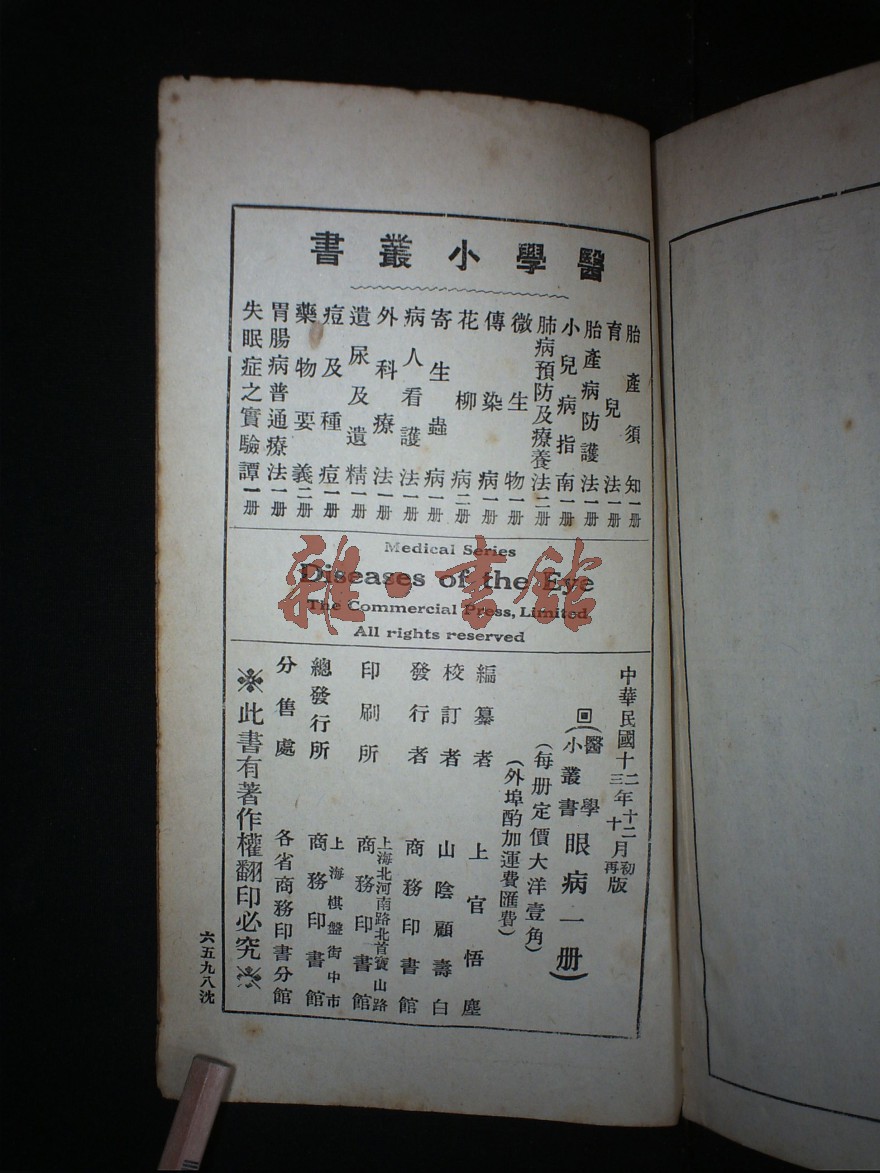 醫學小叢書
胎產須知一册
育兒法一册
胎產病防護法一册
小兒病指南一册
肺病預防及療養法二册
微生物一册
傳染病一册
花柳病二册
寄生蟲病一册
病人看護法一册
外科療法一册
遺尿及遺精一册
痘及種痘一册
藥物要義二册
胃腸病普通療法一册
失眠症之實驗譚一册
Medical Series
Diseases of the Eye
The Commercial Press, Limited
All rights reserved
雜·書館
中華民國十二年十二月初版
三 十 再
回(醫學小叢書眼病一册)
(每册定價大洋壹角)
(外埠酌加運費匯費)
編纂者 上官悟塵
校訂者 山陰顧壽白
發行者 商務印書館
印刷所 上海北河南路北首寶山路 商務印書館
總發行所 上海棋盤街中市 商務印書館
分售處 各省商務印書分館
※此書有著作權翻印必究※
六五九八沈